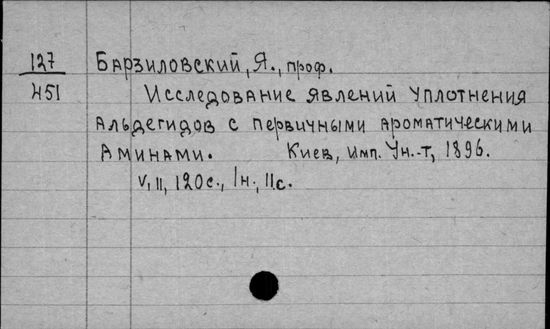 127
451
Барзиловский, Я., проф.
Исследование явлений уплотнения
альдегидов с первичными ароматическими
аминами. Киев, имп. Ун.-т, 1896.
V, II, 120 с., 1н., II с.